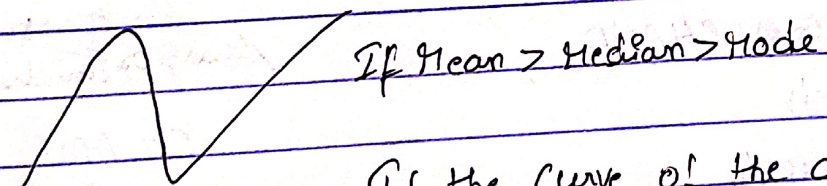 If Mean > Median > Mode
If the curve of the